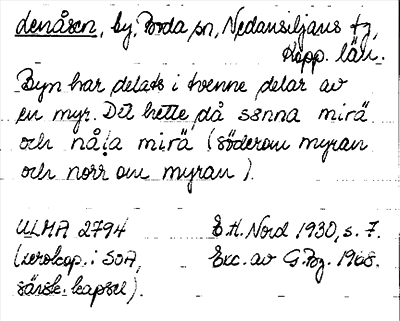 denåsen, by, Boda sn, Nedansiljans fg,
Kopp. län.
Byn har delats i tvenne delar av
en myr. Det hette då sənna mirä
och nåla mirä (söderom myran
och norr om myran).
ULMA 2794 E.H. Nord 1930, s. 7.
(xerokop. i SOA, Exc. av G. Pzg. 1968.
särsk. kapsel).